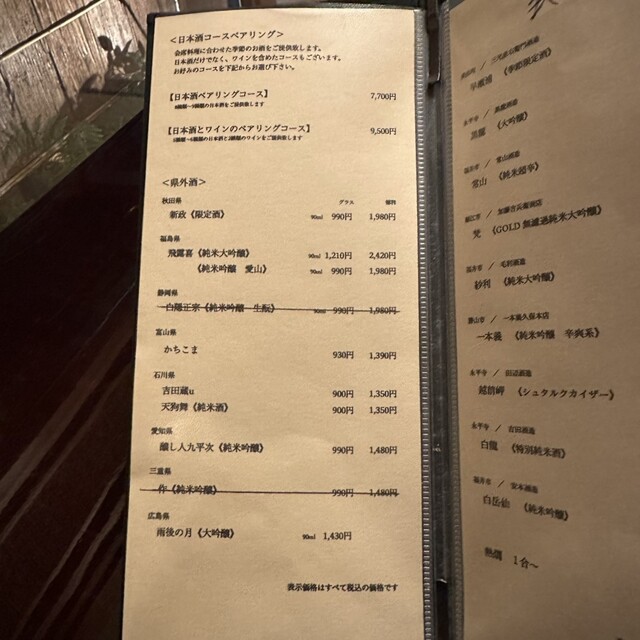 ＜日本酒コースペアリング＞
会席料理に合わせた季節のお酒をご提供致します。
日本酒だけでなく、ワインを含めたコースもございます。
お好みのコースを下記からお選び下さい。
【日本酒ペアリングコース】 7,700円
【日本酒とワインのペアリングコース】 9,500円
＜県外酒＞
秋田県 グラス
新政《限定酒》 90ml 990円 1,980円
福島県
飛露喜《純米大吟醸》 90ml 1,210円 2,420円
《純米吟醸 愛山》 90ml 990円 1,980円
静岡県
白隠正宗《純米吟醸 生酛》 90ml 990円 1,980円
富山県
かちこま 930円 1,390円
石川県
吉田蔵u 900円 1,350円
天狗舞《純米酒》 900円 1,350円
愛知県
醸し人九平次《純米吟醸》 990円 1,480円
三重県
作《純米吟醸》 990円 1,480円
広島県
雨後の月《大吟醸》 90ml 1,430円
表示価格はすべて税込の価格です
早瀬浦 《季節限定酒》
永平寺 / 黒龍酒造
黒龍 《大吟醸》
福井市 / 常山酒造
常山 《純米超辛》
鯖江市 / 加藤吉平商店
梵 《GOLD 無濾過純米大吟醸》
福井市 / 毛利酒造
紗利 《純米大吟醸》
勝山市 / 一本義久保本店
一本義 《純米吟醸 辛爽系》
永平寺 / 田辺酒造
越前岬 《シュタルクカイザー》
永平寺 / 吉田酒造
白龍 《特別純米酒》
福井市 / 安本酒造
白岳仙 《純米吟醸》
熱燗 1合～